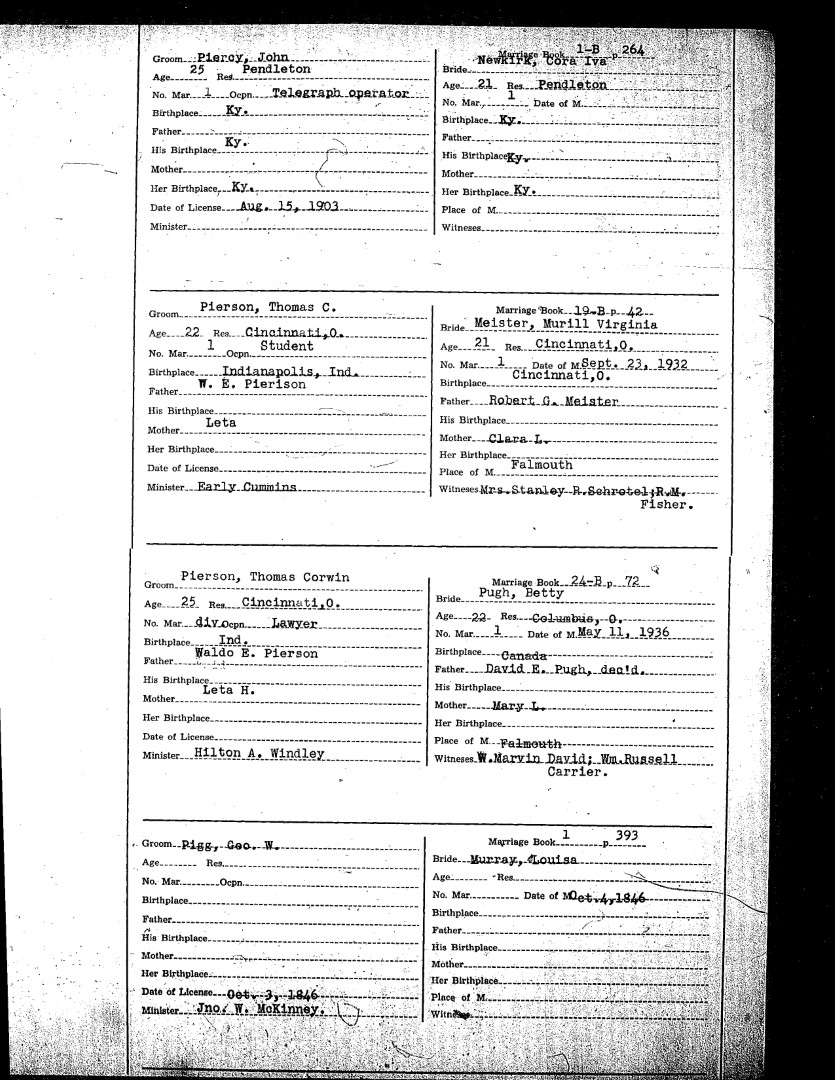 Groom Piercy, John
Age 25 Res. Pendleton
No. Mar. 1 Ocpn. Telegraph operator
Birthplace Ky.
Father
His Birthplace Ky.
Mother
Her Birthplace Ky.
Date of License Aug. 15, 1903
Minister
Marriage Book 1-B p 264
Bride Newkirk, Cora Iva
Age 21 Res. Pendleton
No. Mar. 1 Date of M.
Birthplace Ky.
Father
His Birthplace Ky.
Mother
Her Birthplace Ky.
Place of M.
Witneses
Groom Pierson, Thomas C.
Age 22 Res. Cincinnati,O.
No. Mar. 1 Ocpn. Student
Birthplace Indianapolis, Ind.
Father W. E. Pierison
His Birthplace
Mother Leta
Her Birthplace
Date of License
Minister Early Cummins
Marriage Book 19-B p 42
Bride Meister, Murill Virginia
Age 21 Res. Cincinnati,O.
No. Mar. 1 Date of M. Sept. 23, 1932
Birthplace Cincinnati,O.
Father Robert G. Meister
His Birthplace
Mother Clara L.
Her Birthplace
Place of M. Falmouth
Witneses Mrs.Stanley R.Schrotel;R.M.
Fisher.
Groom Pierson, Thomas Corwin
Age 25 Res. Cincinnati,O.
No. Mar. div. Ocpn. Lawyer
Birthplace Ind.
Father Waldo E. Pierson
His Birthplace
Mother Leta H.
Her Birthplace
Date of License
Minister Hilton A. Windley
Marriage Book 24-B p 72
Bride Pugh, Betty
Age 22 Res. Columbus, O.
No. Mar. 1 Date of M. May 11, 1936
Birthplace Canada
Father David E. Pugh, dec'd.
His Birthplace
Mother Mary L.
Her Birthplace
Place of M. Falmouth
Witneses W.Marvin David; Wm.Russell
Carrier.
Groom Pigg, Geo. W.
Age Res.
No. Mar. Ocpn.
Birthplace
Father
His Birthplace
Mother
Her Birthplace
Date of License Oct. 3, 1846
Minister Jno. W. McKinney.
Marriage Book 1 p 393
Bride Murray, Louisa
Age Res.
No. Mar. Date of M. Oct.4,1846
Birthplace
Father
His Birthplace
Mother
Her Birthplace
Place of M.